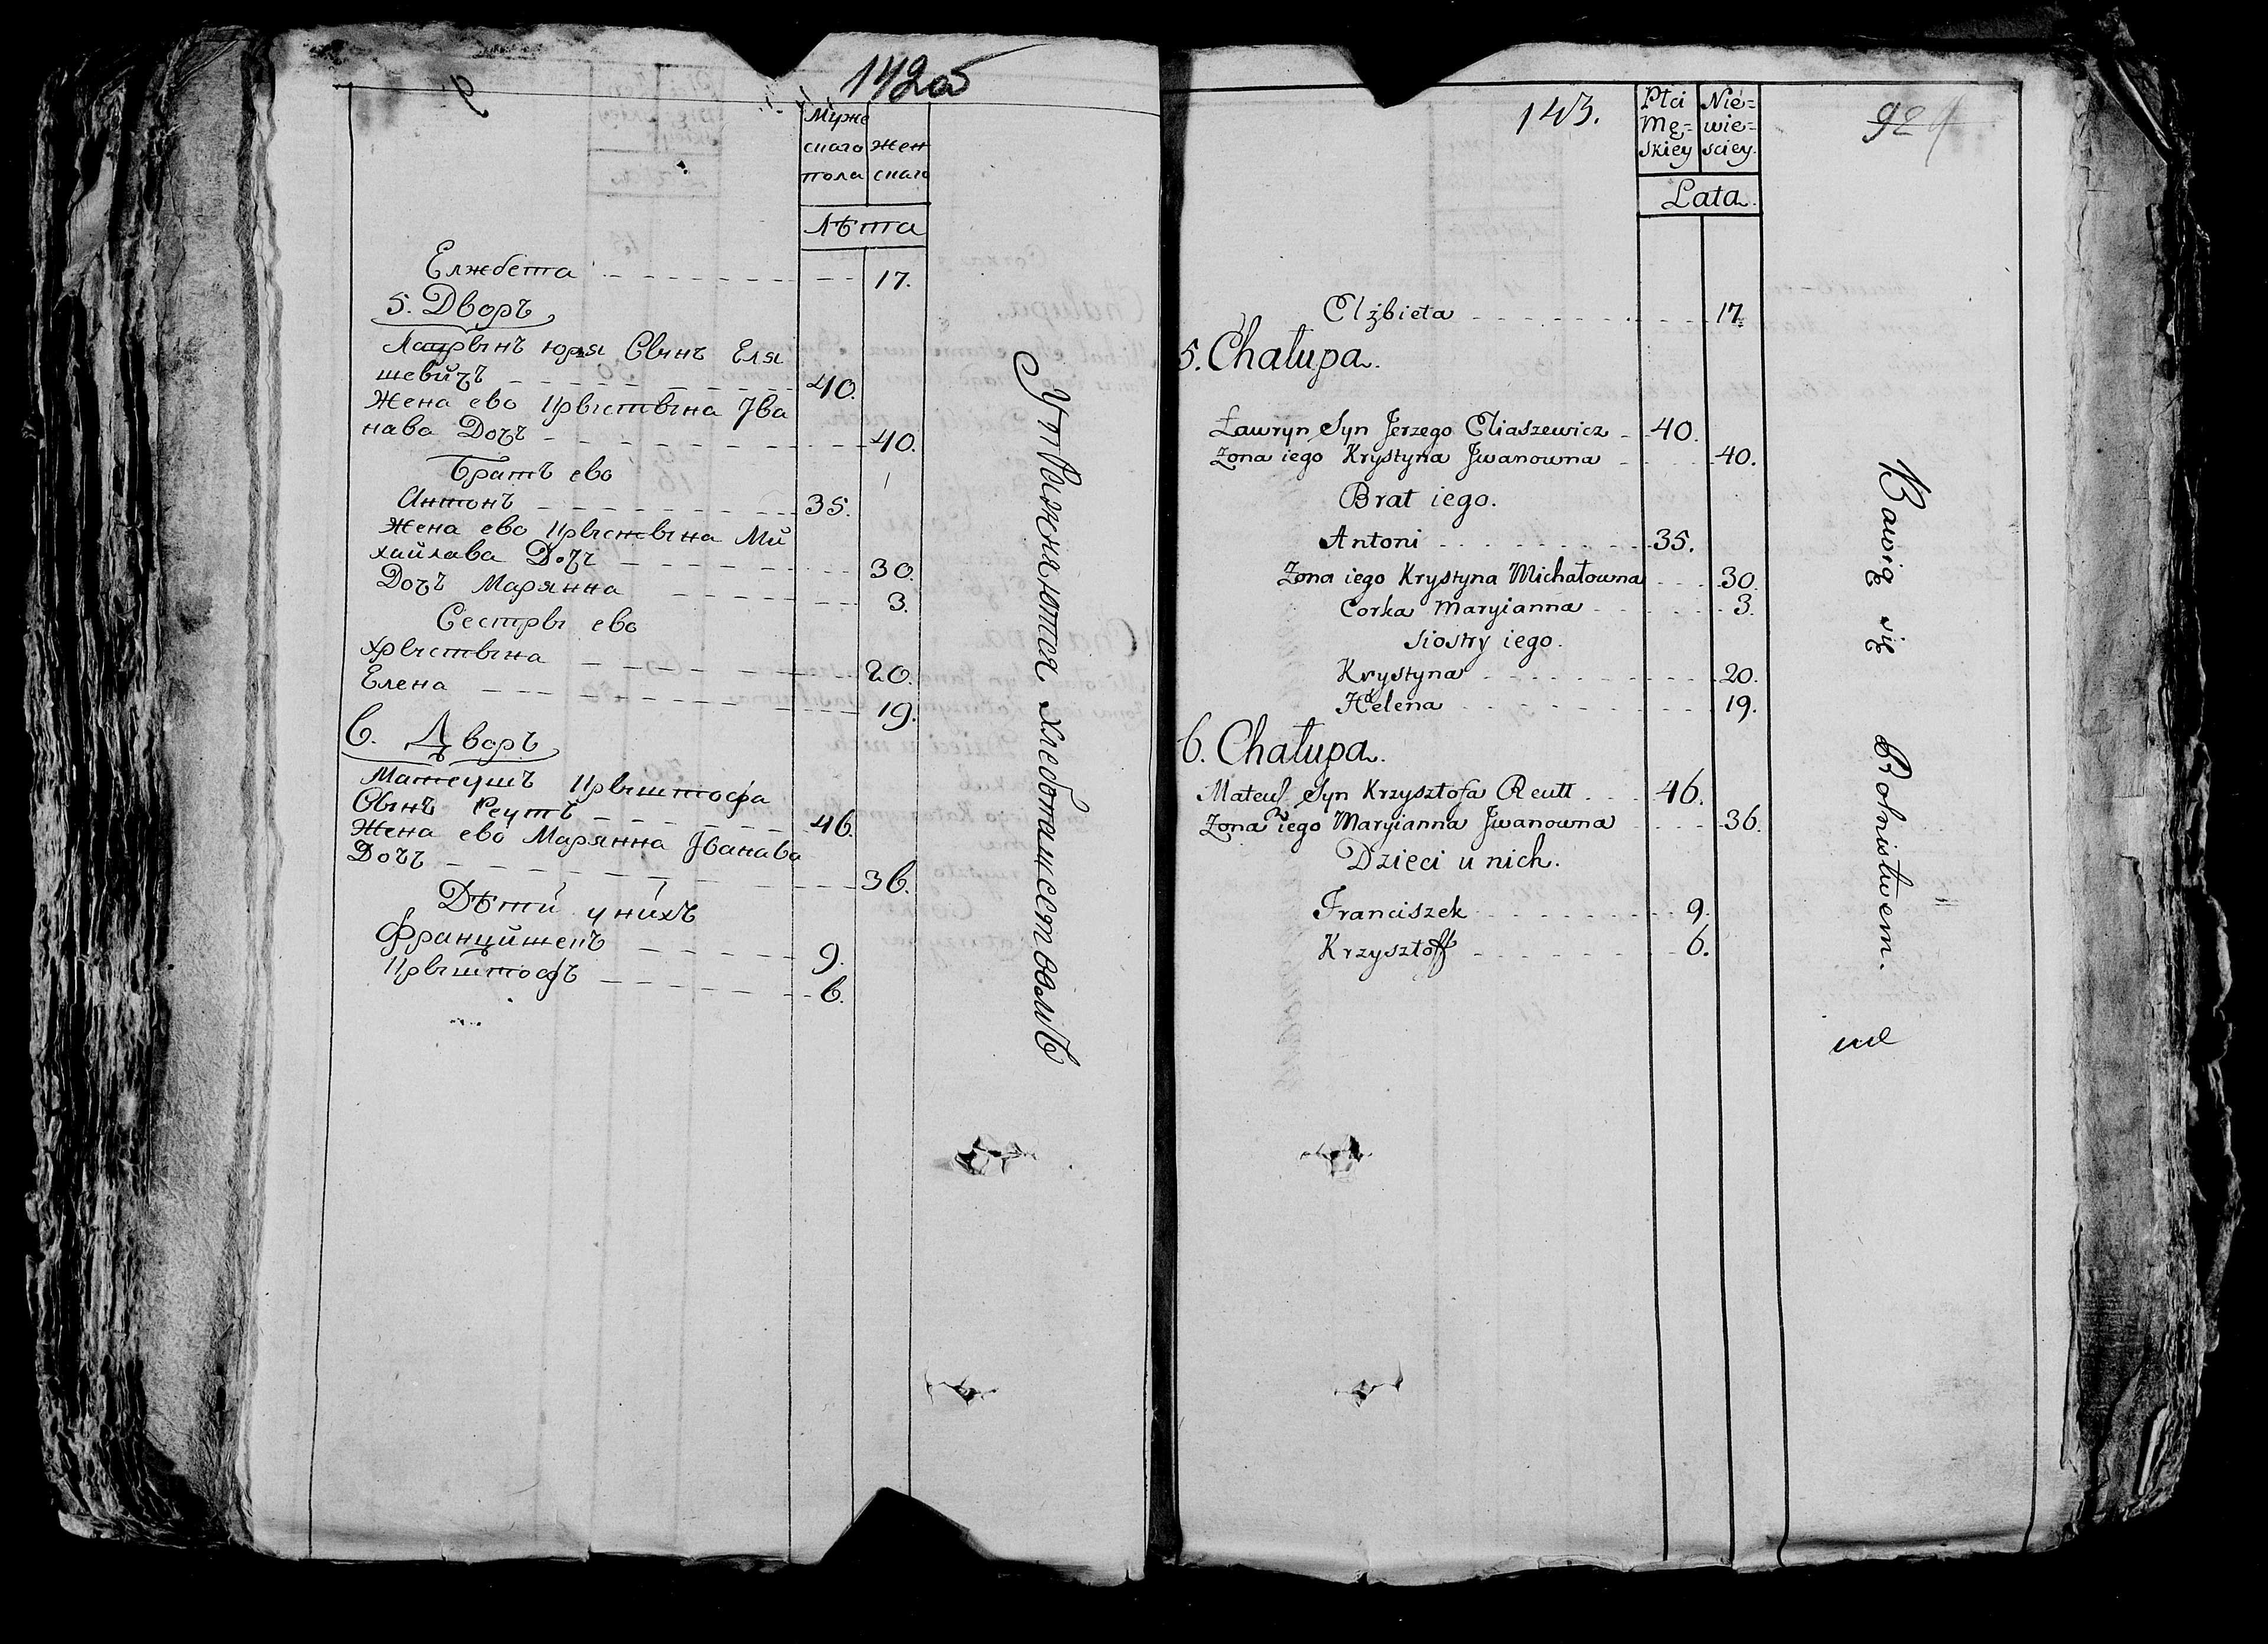 142об
Муже
скаго
пола
Жен
скаго
Лѣта
Елжбета 17.
5. Дворъ
Лаврынъ юрья Сынъ Еля
шевичъ 40.
Жена ево Крыстына Ива
нава Дочъ 40.
Братъ ево
Антонъ 35.
Жена ево Крыстына Ми
хайлава Дочъ 30.
Дочъ Марянна 3.
Сестры ево
Хрыстына 20.
Елена 19.
6. Дворъ
Матеушъ Крыштофа
Сынъ Реутъ 46.
Жена ево Марянна Иванава
Дочъ 36.
Дѣти у нихъ
Францишекъ 9.
Крыштофъ 6.
хлебопашествомъ
143.
924
Płci
Mę=
skiey
Nie=
wie=
sciey.
Lata.
Elżbieta 17.
5. Chałupa.
Ławryn Syn Jerzego Eliaszewicz 40.
Zona iego Krystyna Jwanowna 40.
Brat iego.
Antoni 35.
Zona iego Krystyna Michałowna 30.
Corka Maryianna 3.
Siostry iego.
Krystyna 20.
Helena 19.
6. Chałupa.
Mateusz Syn Krzysztofa Reutt 46.
Zona iego Maryianna Jwanowna 36.
Dzieci u nich.
Franciszek 9.
Krzysztoff 6.
Bawią się Rolnistwem.